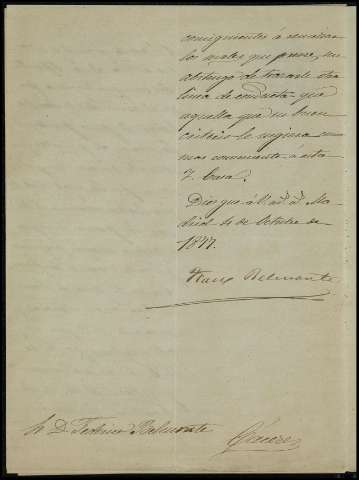 consiguiente á remitir
los males que prevee, me
abstengo de trazarle otra
linea de conducta que
aquella que su buen
criterio le sugiera como
mas conveniente á esta
Casa.
Dios gue á V. ms. as. Ma-
drid 4 de Octubre de
1877.
Belmonte
Sr. D. Federico Belmonte
Cáceres